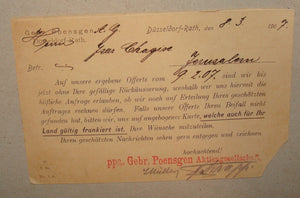 Gebr. Poensgen A.G. Düsseldorf-Rath, den 8. 3. 1907
Düsseldorf-Rath.
Herrn Isac Chagise
Jerusalem
Betr.
Auf unsere ergebene Offerte vom 9 2.07. sind wir bis
jetzt ohne Ihre gefällige Rückäusserung, weshalb wir uns hiermit die
höfliche Anfrage erlauben, ob wir noch auf Erteilung Ihres geschätzten
Auftrages rechnen dürfen. Falls unsere Offerte Ihren Beifall nicht
gefunden hat, bitten wir, uns auf angebogener Karte, welche auch für Ihr
Land gültig frankiert ist, Ihre Wünsche mitzuteilen.
Ihren geschätzten Nachrichten sehen gern entgegen und zeichnen
hochachtend!
ppa. Gebr. Poensgen Aktiengesellschaft.